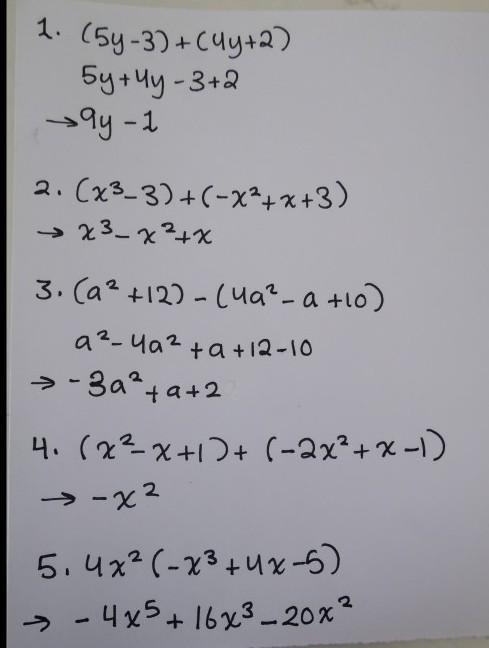 1. (5y-3)+(4y+2)
5y+4y-3+2
→9y-1
2. (x³-3)+(-x²+x+3)
→ x³-x²+x
3. (a²+12)-(4a²-a+10)
a²-4a²+a+12-10
→ -3a²+a+2
4. (x²-x+1)+(-2x²+x-1)
→ -x²
5. 4x²(-x³+4x-5)
→ -4x⁵+16x³-20x²